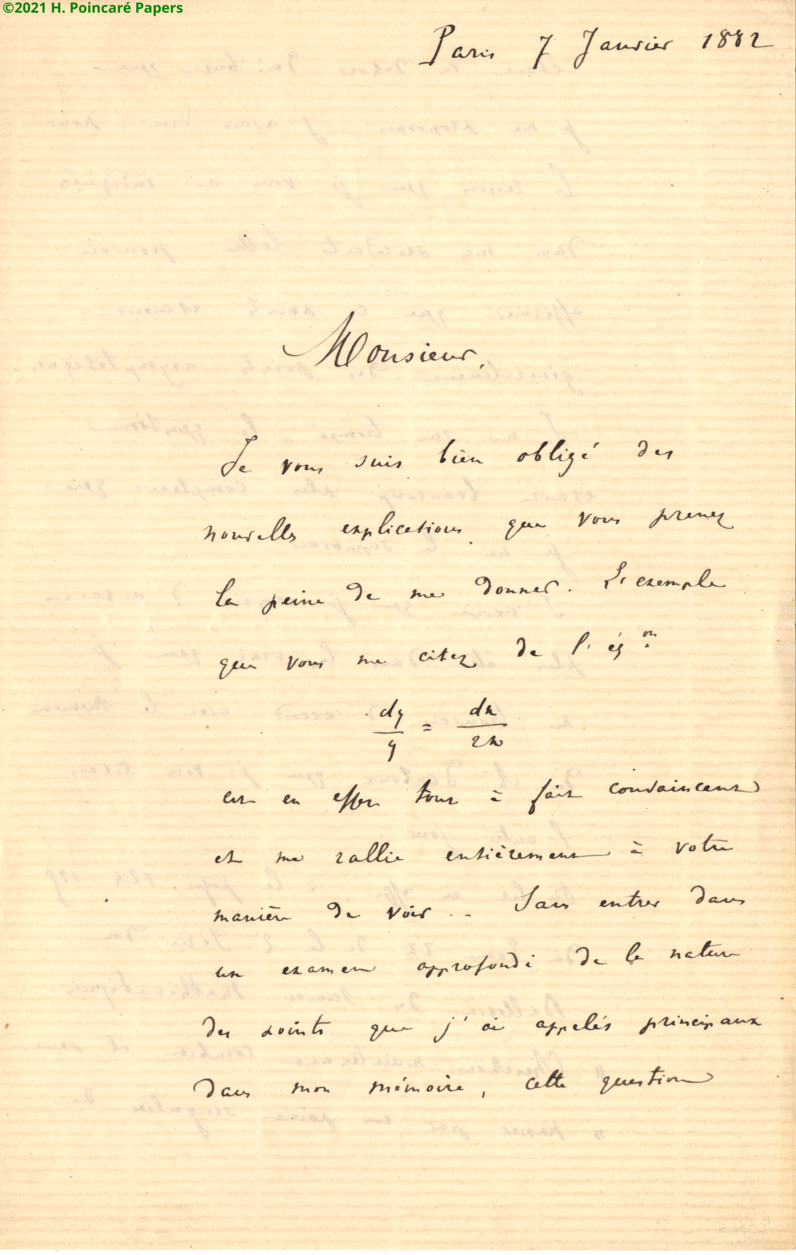 ©2021 H. Poincaré Papers
Paris 7 Janvier 1882
Monsieur,
Je vous suis bien obligé des
nouvelles explications que vous prenez
la peine de me donner. L'exemple
que vous me citez de l'éq^on
dy/y = dx/2x
est en effet tout à fait convaincant
et me rallie entièrement à votre
manière de voir. Sans entrer dans
un examen approfondi de la nature
des points que j'ai appelés principaux
dans mon mémoire, cette question